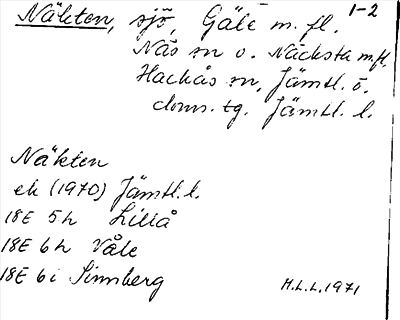 Näkten, sjö, Gåle m. fl. 1-2
Näs sn o. Näcksta m.fl.
Hackås sn, Jämtl. ö.
doms. tg. Jämtl. l.
Näkten
ek (1970) Jämtl. l.
18E 5h Lillå
18E 6h Våle
18E 6i Sinnberg
H.L.L. 1971